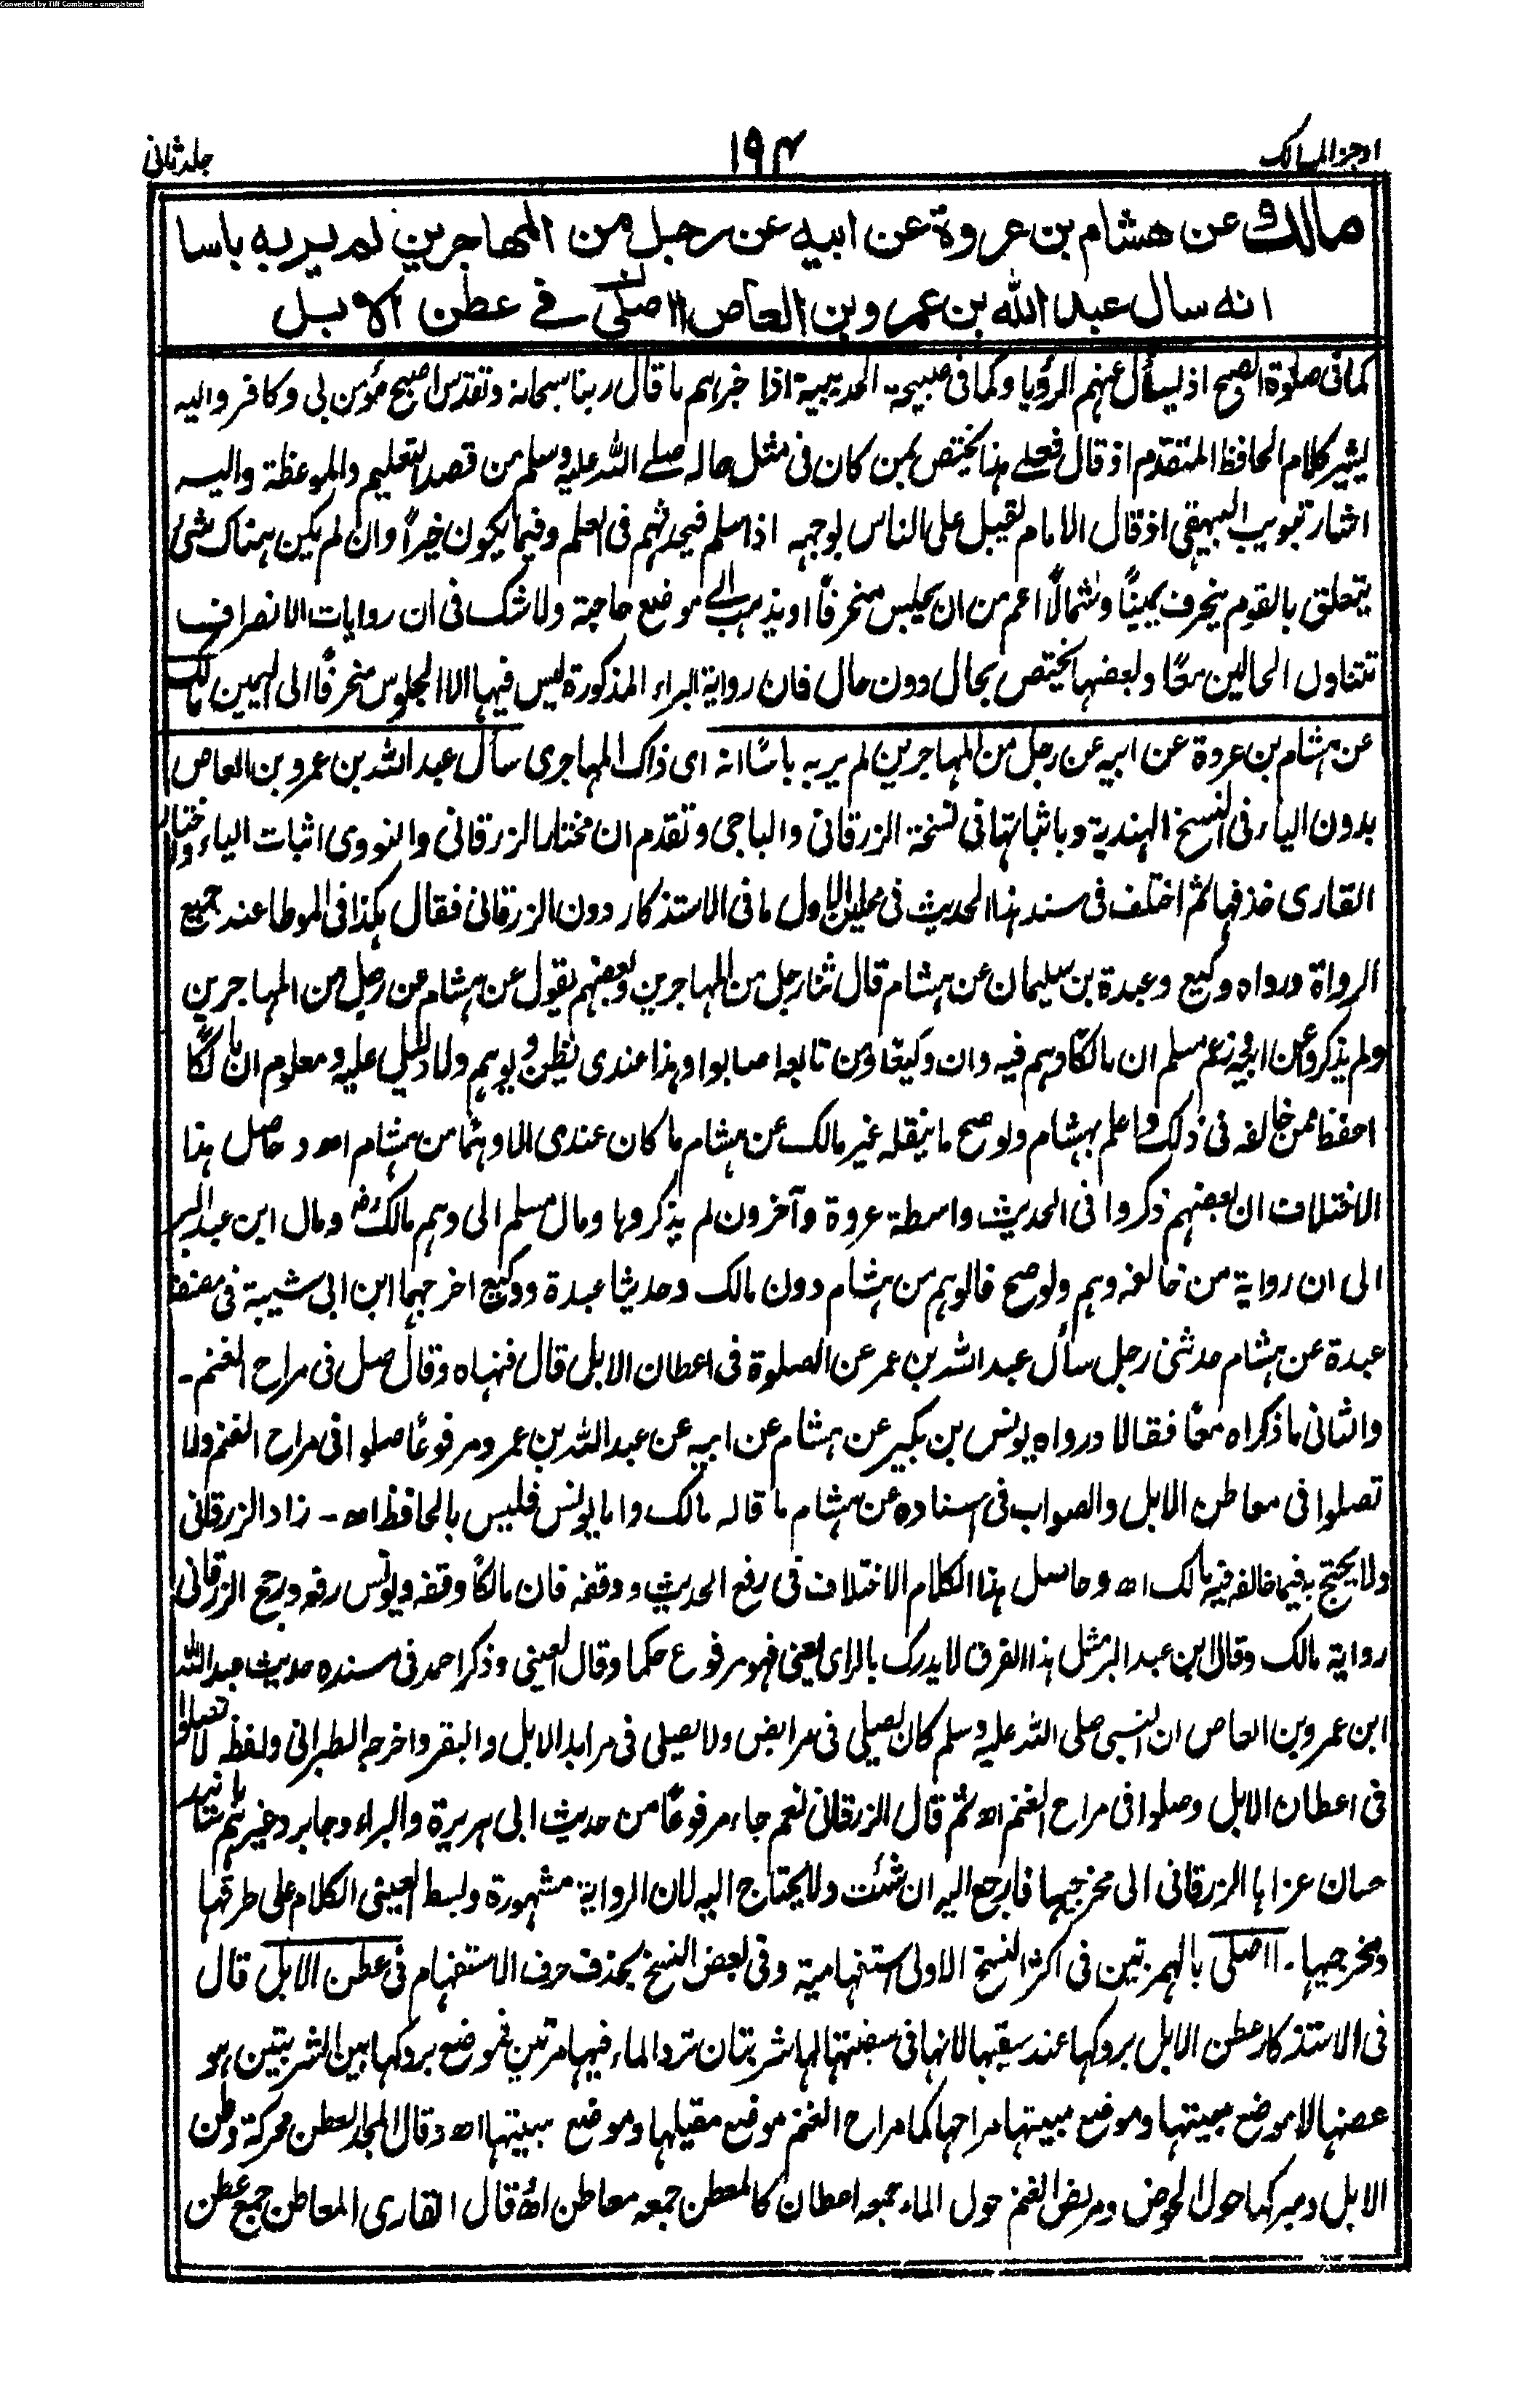 Converted by Tiff Combine - unregistered
اوجز المسالک ۱۹۴ جلد ثانی
مالك عن هشام بن عروة عن ابیه عن رجل من المهاجرین لم یر به باسا
انه سال عبد الله بن عمرو بن العاص ااصلی فے عطن الابل
کما فی صلوة الصبح اذ یسأل عنهم الرؤیا وکما فی صبیحة الحدیبیة اذا خبرہم ما قال ربنا سبحانه وتقدس اصبح مؤمن بی وکافر والیه
یشیر کلام الحافظ المتقدم اذ قال فعلے هذا یختص بمن کان فی مثل حاله صلے الله علیه وسلم من قصد التعلیم والموعظة والیه
اشار تبویب البیهقی اذ قال الامام یقبل علی الناس بوجهه اذا سلم فیحدثهم فی العلم وفیما یکون خیراً وان لم یکن هناک شئ
یتعلق بالقوم ینحرف یمیناً وشمالاً اعم من ان یجلس منحرفاً او یذهب الے موضع حاجته ولا شک فی ان روایات الانصراف
تتناول الحالین معاً وبعضها یختص بحال دون حال فان روایة البراء المذکورة لیس فیها الا الجلوس منحرفاً الی الیمین مالک
عن هشام بن عروة عن ابیه عن رجل من المهاجرین لم یر به باساً انه ای ذاک المهاجری سأل عبد الله بن عمرو بن العاص
بدون الیاء فی النسخ الهندیة وباثباتها فی نسخة الزرقانی والباجی وتقدم ان مختار الزرقانی والنووی اثبات الیاء واختار
القاری حذفها ثم اختلف فی سند هذا الحدیث فی محلین الاول ما فی الاستذکار دون الزرقانی فقال هکذا فی الموطا عند جمیع
الرواة ورواه وکیع وعبدة بن سلیمان عن هشام قال ثنا رجل من المهاجرین وبعضهم یقول عن هشام عن رجل من المهاجرین
ولم یذکروا عن ابیه وزعم مسلم ان مالکا وهم فیه وان وکیعا ومن تابعه اصابوا وهذا عندی ظن وتوهم ولا دلیل علیه ومعلوم ان مالکاً
احفظ ممن خالفه فی ذلک واعلم بهشام ولو صح ما ینقله غیر مالک عن هشام ما کان عندی الا وهما من هشام اهـ وحاصل هذا
الاختلاف ان بعضهم ذکروا فی الحدیث واسطة عروة وآخرون لم یذکروها ومال مسلم الی وهم مالک رض ومال ابن عبد البر
الی ان روایة من خالفه وهم ولو صح فالوهم من هشام دون مالک وحدیثا عبدة ووکیع اخرجهما ابن ابی شیبة فی مصنفه
عبدة عن هشام حدثنی رجل سأل عبد الله بن عمر عن الصلوة فی اعطان الابل قال فنهاه وقال صل فی مراح الغنم۔
والثانی ما ذکراه معاً فقالا ورواه یونس بن بکیر عن هشام عن ابیه عن عبد الله بن عمرو مرفوعاً صلوا فی مراح الغنم ولا
تصلوا فی معاطن الابل والصواب فی اسناده عن هشام ما قاله مالک واما یونس فلیس بالحافظ اهـ - زاد الزرقانی
ولا یحتج به فیما خالفه فیه مالک اهـ وحاصل هذا الکلام الاختلاف فی رفع الحدیث ووقفه فان مالکا وقفه ویونس رفعه ورجح الزرقانی
روایة مالک وقال ابن عبد البر مثل هذا الفرق لا یدرک بالرای یعنی فهو مرفوع حکما وقال العینی وذکر احمد فی مسنده حدیث عبد الله
ابن عمرو بن العاص ان النبی صلی الله علیه وسلم کان یصلی فی مرابض ولا یصلی فی مرابد الابل والبقر واخرجه الطبرانی ولفظه لا تصلوا
فی اعطان الابل وصلوا فی مراح الغنم اهـ ثم قال الزرقانی نعم جاء مرفوعاً من حدیث ابی هریرة والبراء وجابر وغیرهم باسانید
حسان عزاها الزرقانی الی مخرجیها فارجع الیه ان شئت ولا یحتاج الیه لان الروایة مشهورة وبسط العینی الکلام علی طرقها
ومخرجیها۔ ااصلی بالهمزتین فی اکثر النسخ الاولی استفهامیة وفی بعض النسخ بحذف حرف الاستفهام فی عطن الابل قال
فی الاستذکار عطن الابل بروکها عند سقیها لانها فی سقیتها لها شربتان ترد الماء فیها مرتین فموضع بروکها بین الشربتین هو
عطنها لا موضع مبیتها وموضع مبیتها مراحها کما مراح الغنم موضع مقیلها وموضع مبیتها اهـ وقال المجد العطن محرکة وطن
الابل ومبرکها حول الحوض ومربض الغنم حول الماء جمعه اعطان کالمعطن جمعه معاطن اهـ قال القاری المعاطن جمع عطن